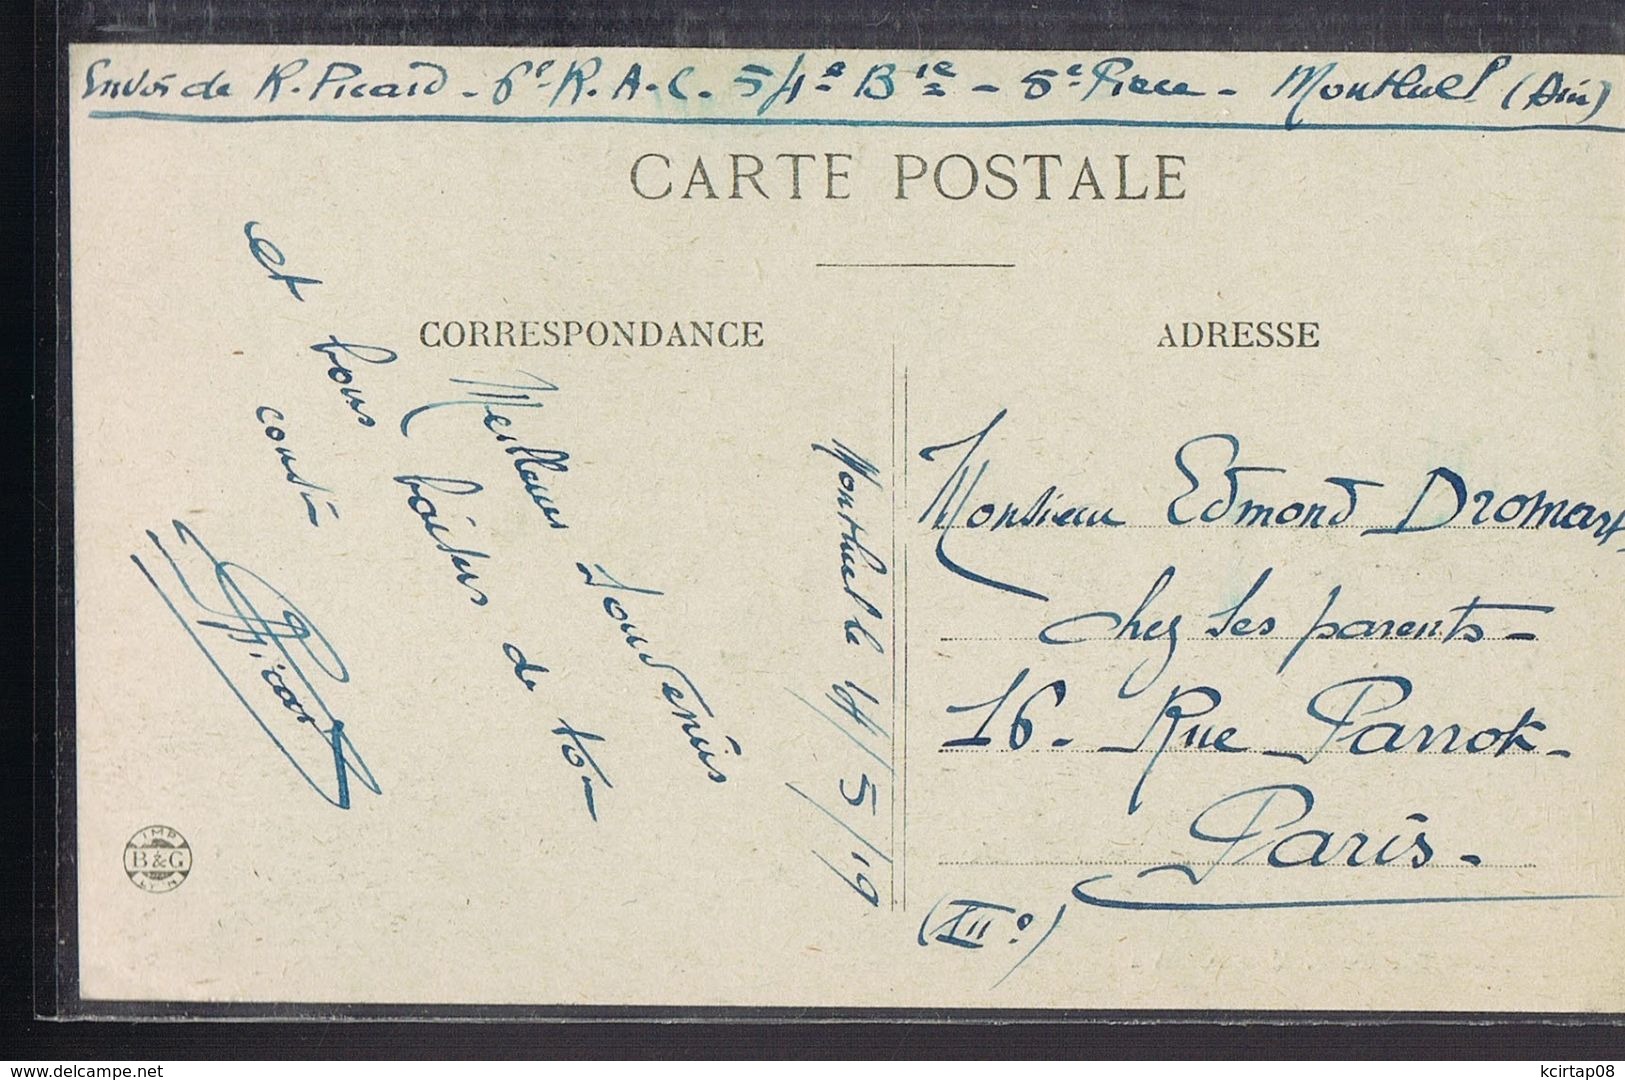 Envoi de R. Picard - 6e R.A.C. 54e Bie - 5e Pièce - Montluel (Ain)
CARTE POSTALE
CORRESPONDANCE
ADRESSE
Montluel le 14/5/19
Meilleurs souvenirs
et bons baisers de ton
cousin
Picard
Monsieur Edmond Dromart
chez ses parents -
16 - Rue Parrot -
Paris -
(XIIe)
IMP
B&G
LYON
delcampe.net
kcirtap08